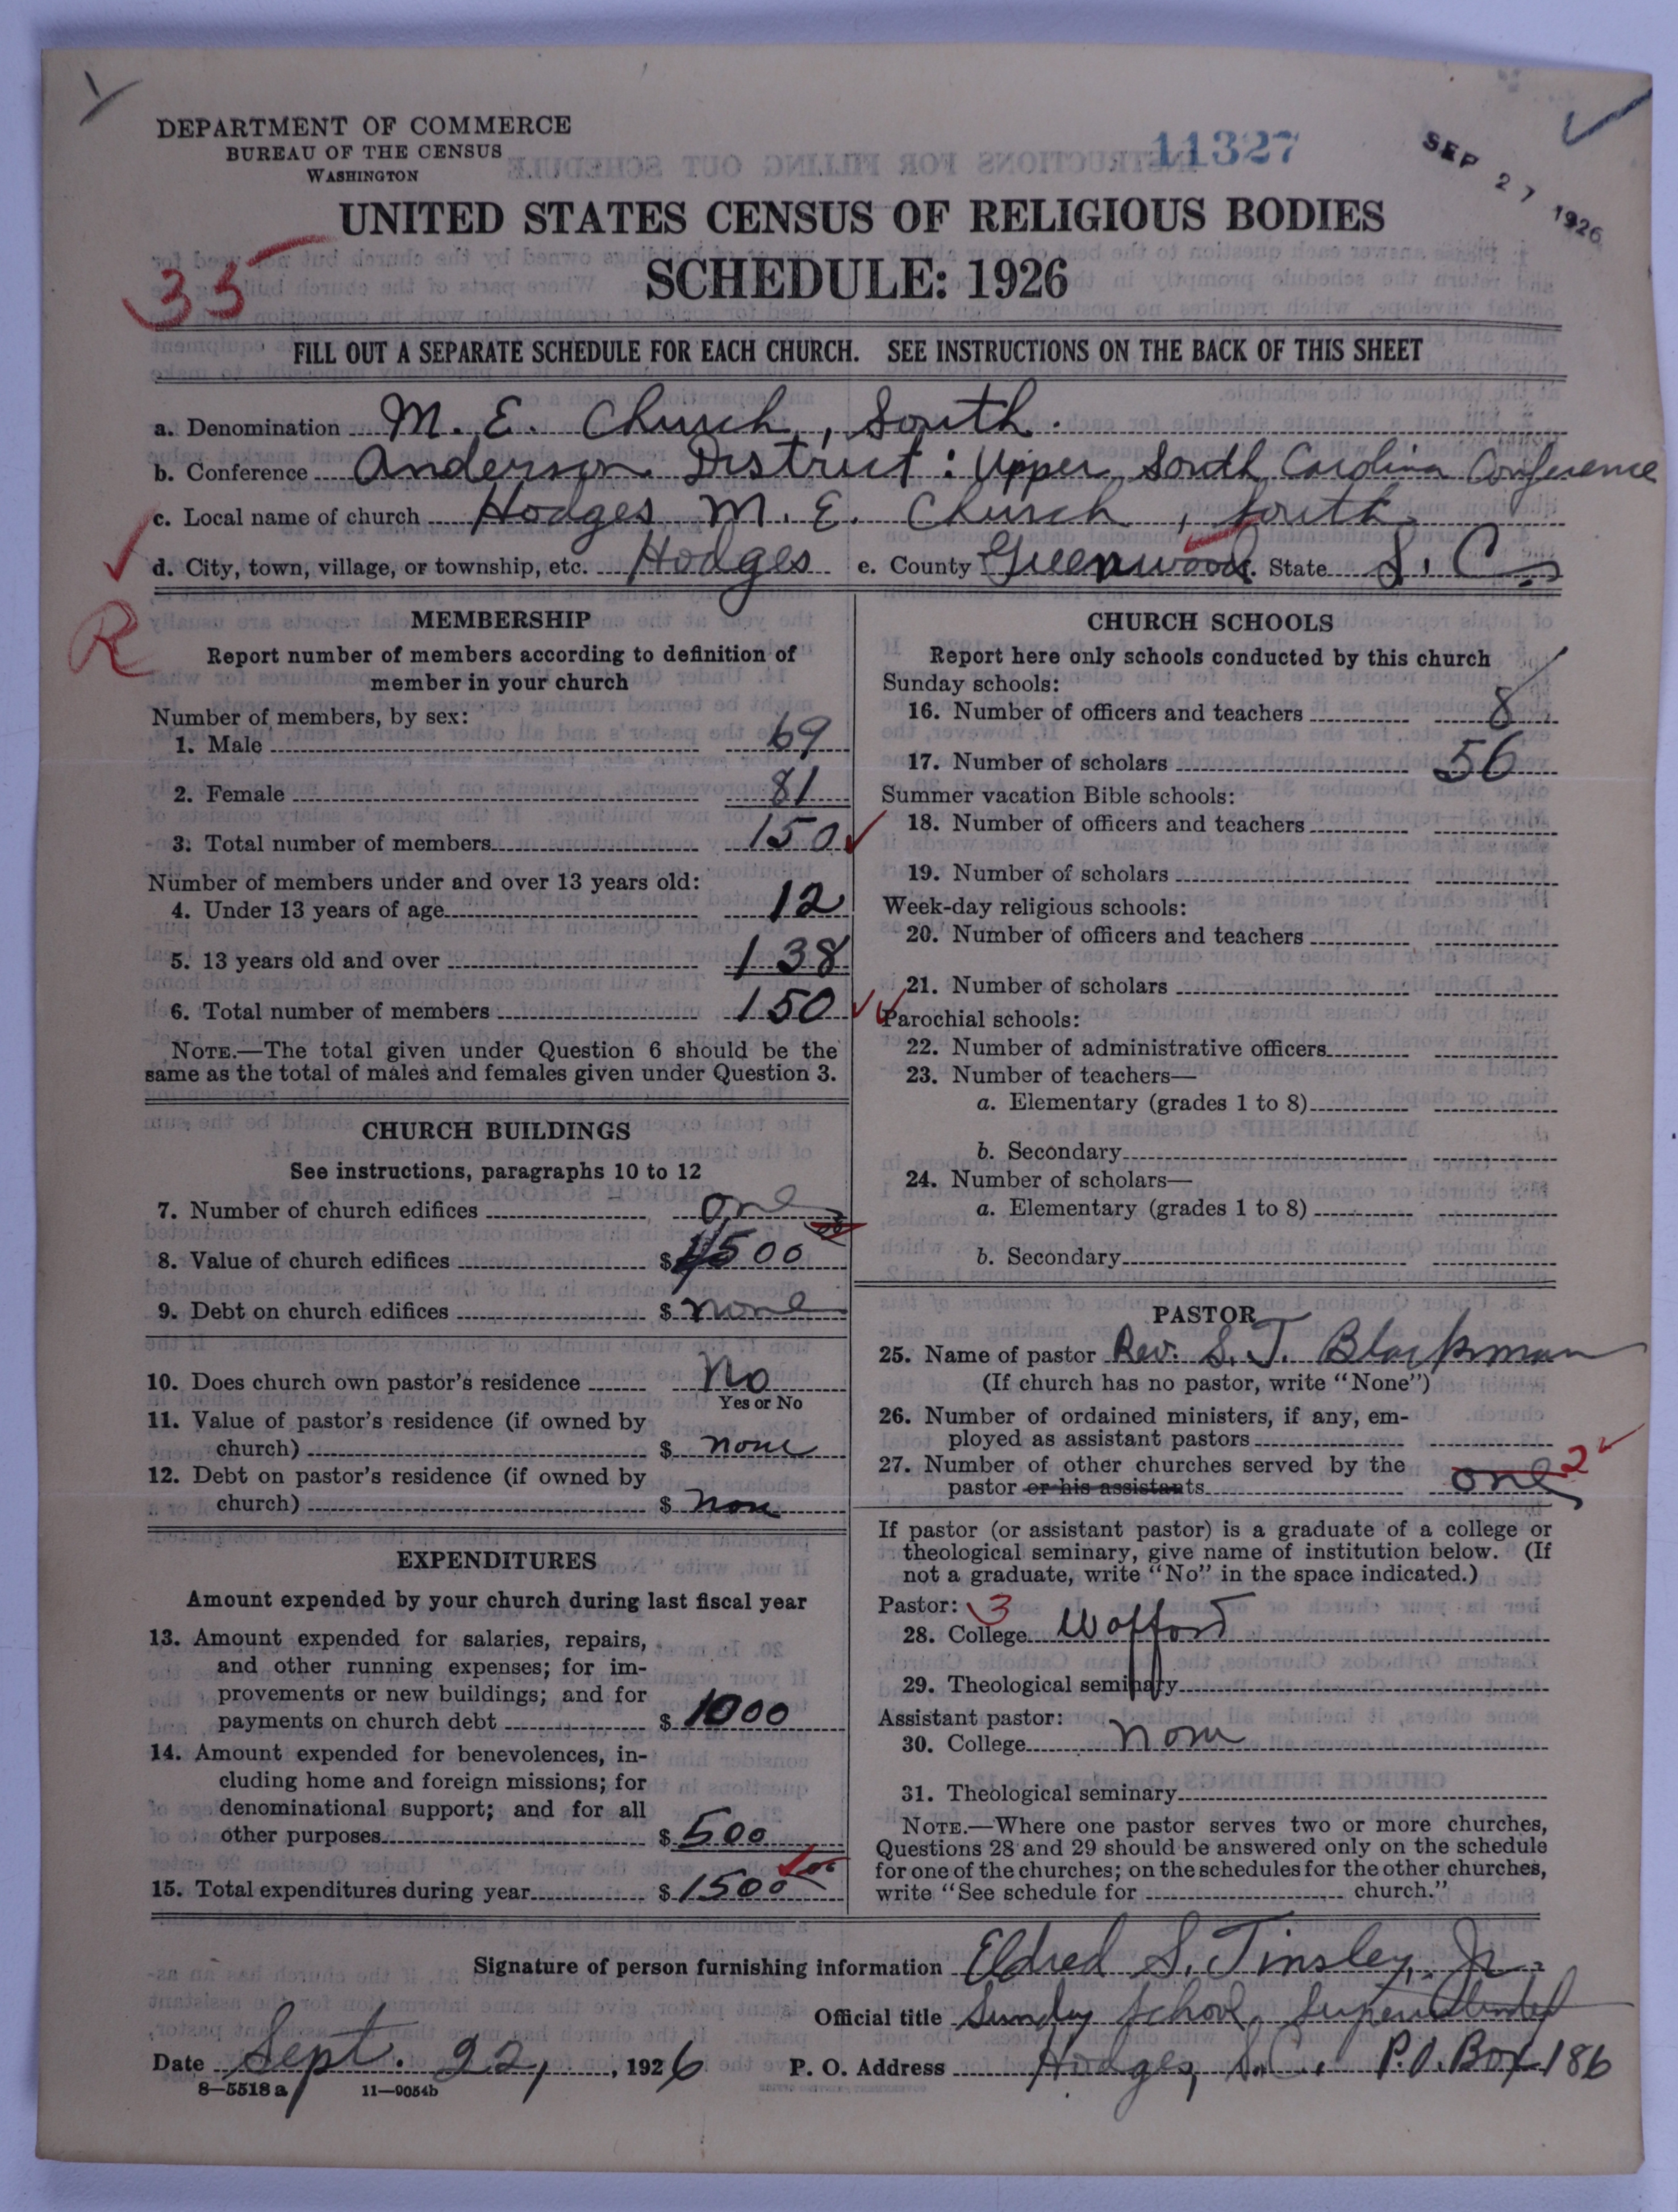 DEPARTMENT OF COMMERCE
BUREAU OF THE CENSUS
WASHINGTON
11327
SEP 27 1926
UNITED STATES CENSUS OF RELIGIOUS BODIES
SCHEDULE: 1926
35
FILL OUT A SEPARATE SCHEDULE FOR EACH CHURCH. SEE INSTRUCTIONS ON THE BACK OF THIS SHEET
a. Denomination M. E. Church, South.
b. Conference Anderson District: Upper South Carolina Conference
c. Local name of church Hodges M. E. Church, South
d. City, town, village, or township, etc. Hodges e. County Greenwood. State S. C.
R
MEMBERSHIP
Report number of members according to definition of
member in your church
Number of members, by sex:
1. Male 69
2. Female 81
3. Total number of members 150
Number of members under and over 13 years old:
4. Under 13 years of age 12
5. 13 years old and over 138
6. Total number of members 150
NOTE.—The total given under Question 6 should be the
same as the total of males and females given under Question 3.
CHURCH BUILDINGS
See instructions, paragraphs 10 to 12
7. Number of church edifices one
8. Value of church edifices $ 1500
9. Debt on church edifices $ none
10. Does church own pastor's residence No
Yes or No
11. Value of pastor's residence (if owned by
church) $ none
12. Debt on pastor's residence (if owned by
church) $ none
EXPENDITURES
Amount expended by your church during last fiscal year
13. Amount expended for salaries, repairs,
and other running expenses; for im-
provements or new buildings; and for
payments on church debt $ 1000
14. Amount expended for benevolences, in-
cluding home and foreign missions; for
denominational support; and for all
other purposes $ 500
15. Total expenditures during year $ 1500
CHURCH SCHOOLS
Report here only schools conducted by this church
Sunday schools:
16. Number of officers and teachers 8
17. Number of scholars 56
Summer vacation Bible schools:
18. Number of officers and teachers
19. Number of scholars
Week-day religious schools:
20. Number of officers and teachers
21. Number of scholars
Parochial schools:
22. Number of administrative officers
23. Number of teachers—
a. Elementary (grades 1 to 8)
b. Secondary
24. Number of scholars—
a. Elementary (grades 1 to 8)
b. Secondary
PASTOR
25. Name of pastor Rev. S. T. Blackman
(If church has no pastor, write "None")
26. Number of ordained ministers, if any, em-
ployed as assistant pastors
27. Number of other churches served by the
pastor or his assistants one 2
If pastor (or assistant pastor) is a graduate of a college or
theological seminary, give name of institution below. (If
not a graduate, write "No" in the space indicated.)
Pastor: 3
28. College Wofford
29. Theological seminary
Assistant pastor:
30. College none
31. Theological seminary
NOTE.—Where one pastor serves two or more churches,
Questions 28 and 29 should be answered only on the schedule
for one of the churches; on the schedules for the other churches,
write "See schedule for church."
Signature of person furnishing information Eldred S. Tinsley, Jr.
Official title Sunday School Superintendent
Date Sept. 22, 1926 P. O. Address Hodges, S.C. P.O. Box 186
8—5518 a 11—9054b